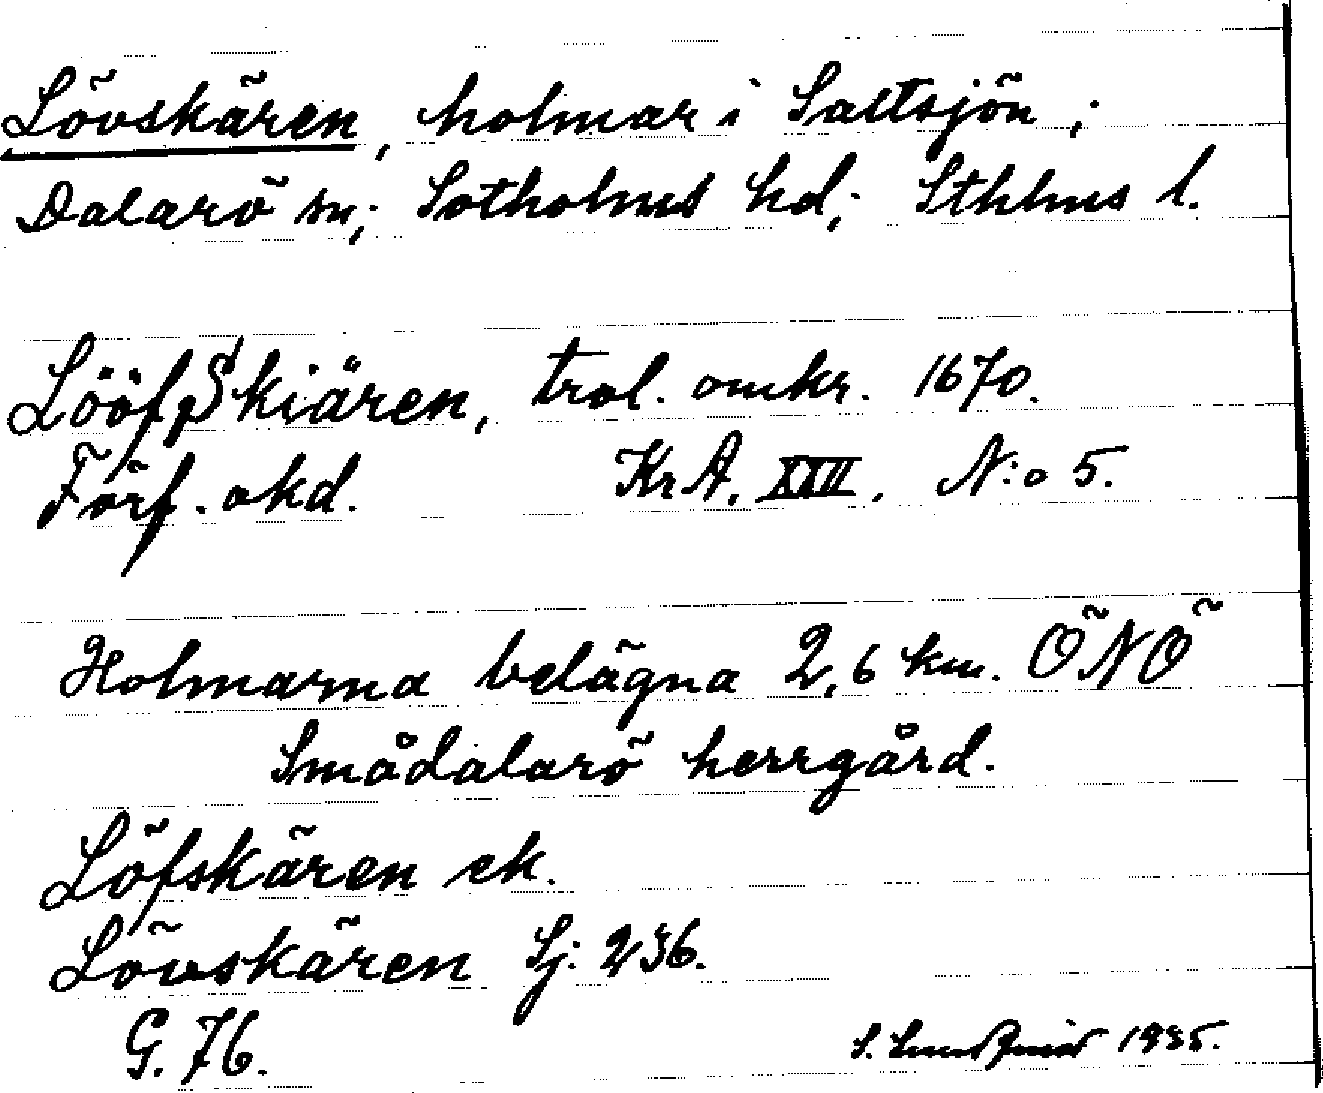 Lövskären, holmar i Saltsjön;
Dalarö sn; Sotholms hd; Sthlms l.
LööfSkiären, trol. omkr. 1670.
Förf. okd. KrA. XXII. N:o 5.
Holmarna belägna 2,6 km. ÖNÖ
Smådalarö herrgård.
Löfskären ek.
Lövskären Sj: 236.
G. 76.
S. 1935.